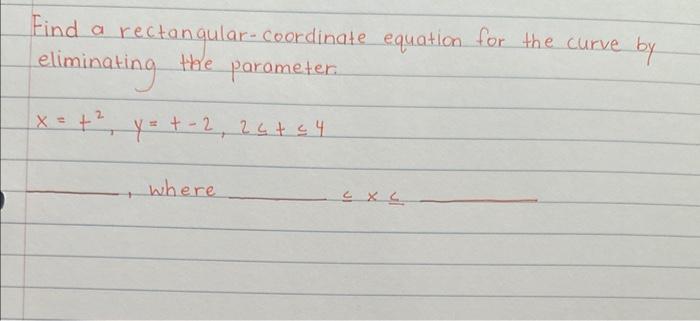 Find a rectangular-coordinate equation for the curve by
eliminating the parameter.
x = t², y = t - 2, 2 ≤ t ≤ 4
______, where ______ ≤ x ≤ ______